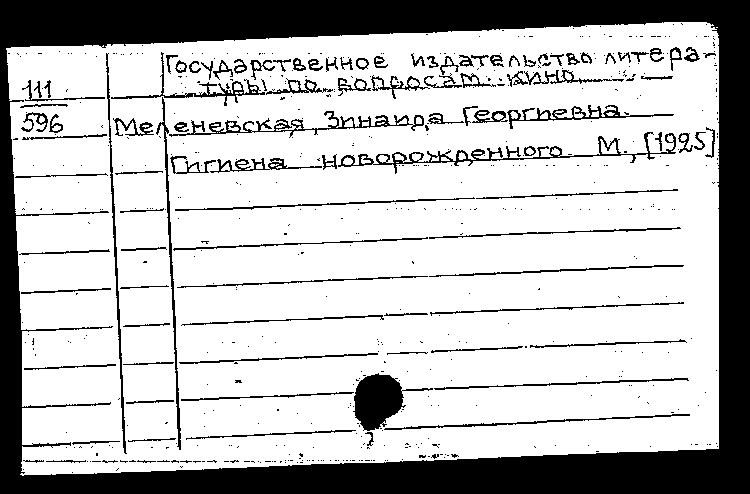 Государственное издательство литера-
туры по вопросам кино
111
596
Меленевская, Зинаида Георгиевна.
Гигиена новорожденного М., [1925]